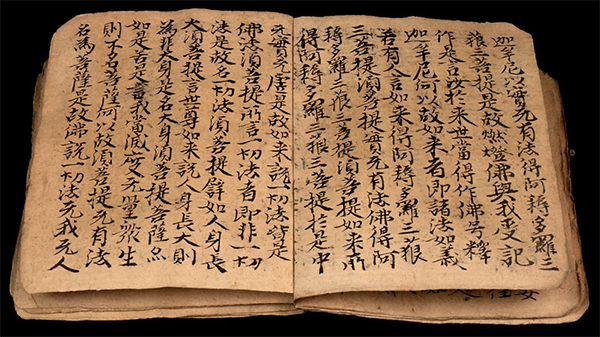 迦牟尼以實无有法得阿耨多羅三
藐三菩提是故燃燈佛與我受記
作是言汝於来世當得作佛号釋
迦牟尼何以故如来者即諸法如義
若有人言如来得阿耨多羅三藐
三菩提須菩提實无有法佛得阿
耨多羅三藐三菩提須菩提如来所
得阿耨多羅三藐三菩提於是中
无實无虗是故如来說一切法皆是
佛法須菩提所言一切法者即非一切
法是故名一切法須菩提譬如人身長
大須菩提言世尊如来說人身長大則
為非大身是名大身須菩提菩薩亦
如是若是言我當滅度无量衆生
則不名菩薩何以故須菩提无有法
名為菩薩是故佛說一切法无我无人